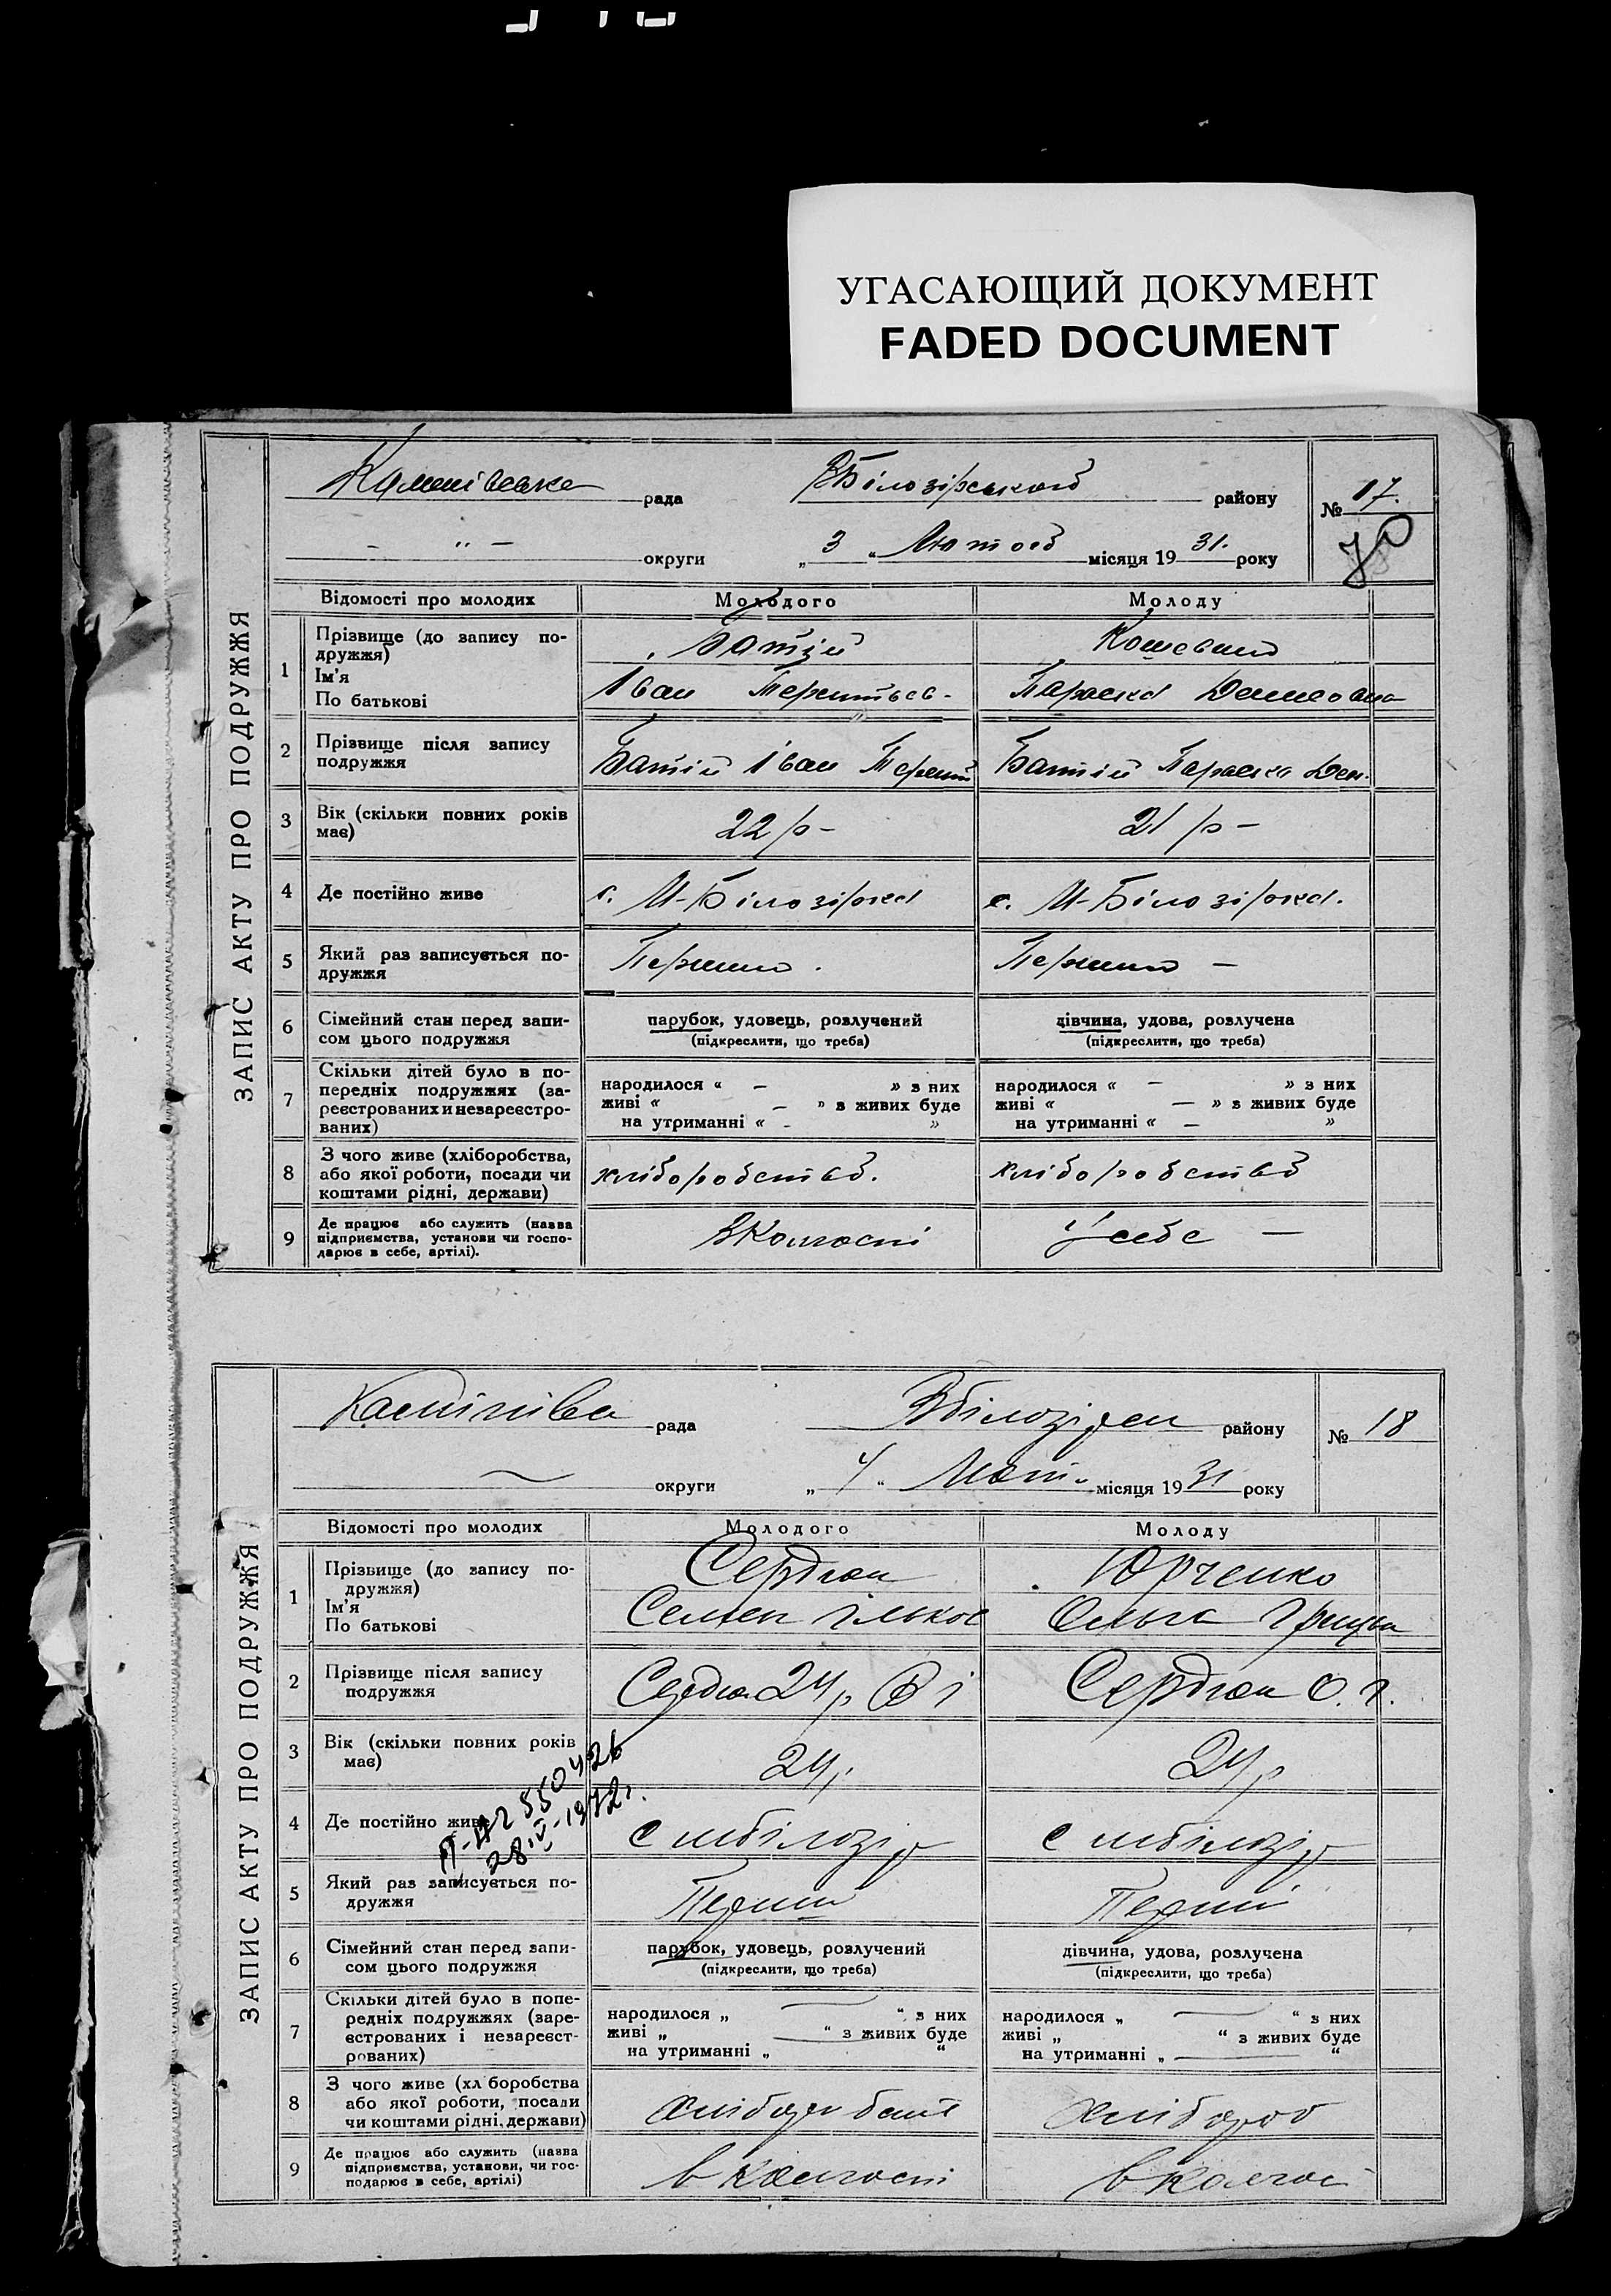 УГАСАЮЩИЙ ДОКУМЕНТ
FADED DOCUMENT
ЗАПИС АКТУ ПРО ПОДРУЖЖЯ
рада ВБілозірського району № 17.
округи „ 3 “ Лютого місяця 19 31. року
Відомості про молодих Молодого Молоду
1 Прізвище (до запису по-
дружжя)
Ім'я
По батькові
Батій
Іван Терентьев-
Кошевий
Параска
2 Прізвище після запису
подружжя
Батій Іван Терент
Батій Параска Дем.
3 Вік (скільки повних років
має)
22 р - 21 р -
4 Де постійно живе с. М-Білозірка с. М-Білозірка.
5 Який раз записується по-
дружжя
Перший. Перший -
6 Сімейний стан перед запи-
сом цього подружжя
парубок, удовець, розлучений
(підкреслити, що треба)
дівчина, удова, розлучена
(підкреслити, що треба)
7 Скільки дітей було в по-
передніх подружжях (за-
реєстрованих и незареєстро-
ваних)
народилося « — » з них
живі « — » з живих буде
на утриманні « - »
народилося « — » з них
живі « — » з живих буде
на утриманні « — »
8 З чого живе (хліборобства,
або якої роботи, посади чи
коштами рідні, держави)
хліборобство. хліборобство
9 Де працює або служить (назва
підприємства, установи чи госпо-
дарює в себе, артілі).
В Колгоспі У себе —
ЗАПИС АКТУ ПРО ПОДРУЖЖЯ
рада району № 18
округи „ 4 “ Лют. місяця 19 31 року
Відомості про молодих Молодого Молоду
1 Прізвище (до запису по-
дружжя)
Ім'я
По батькові
Сердюк
Семен Ільков
Юрченко
Ольга Грицьк
2 Прізвище після запису
подружжя
Сердюк О. г.
3 Вік (скільки повних років
має)
24 р. 24 р
4 Де постійно живе с мбілозір с мбілозір
550426
28 IV-1972г.
5 Який раз записується по-
дружжя
Перший Перший
6 Сімейний стан перед запи-
сом цього подружжя
парубок, удовець, розлучений
(підкреслити, що треба)
дівчина, удова, розлучена
(підкреслити, що треба)
7 Скільки дітей було в попе-
редніх подружжях (заре-
єстрованих і незареєст-
рованих)
народилося „ — “ з них
живі „ — “ з живих буде
на утриманні „ “
народилося „ — “ з них
живі „ “ з живих буде
на утриманні „ — “
8 З чого живе (хл боробства
або якої роботи, посади
чи коштами рідні, держави)
хлібороб
9 Де працює або служить (назва
підприємства, установи, чи гос-
подарює в себе, артілі)
в колгоспі в колгос